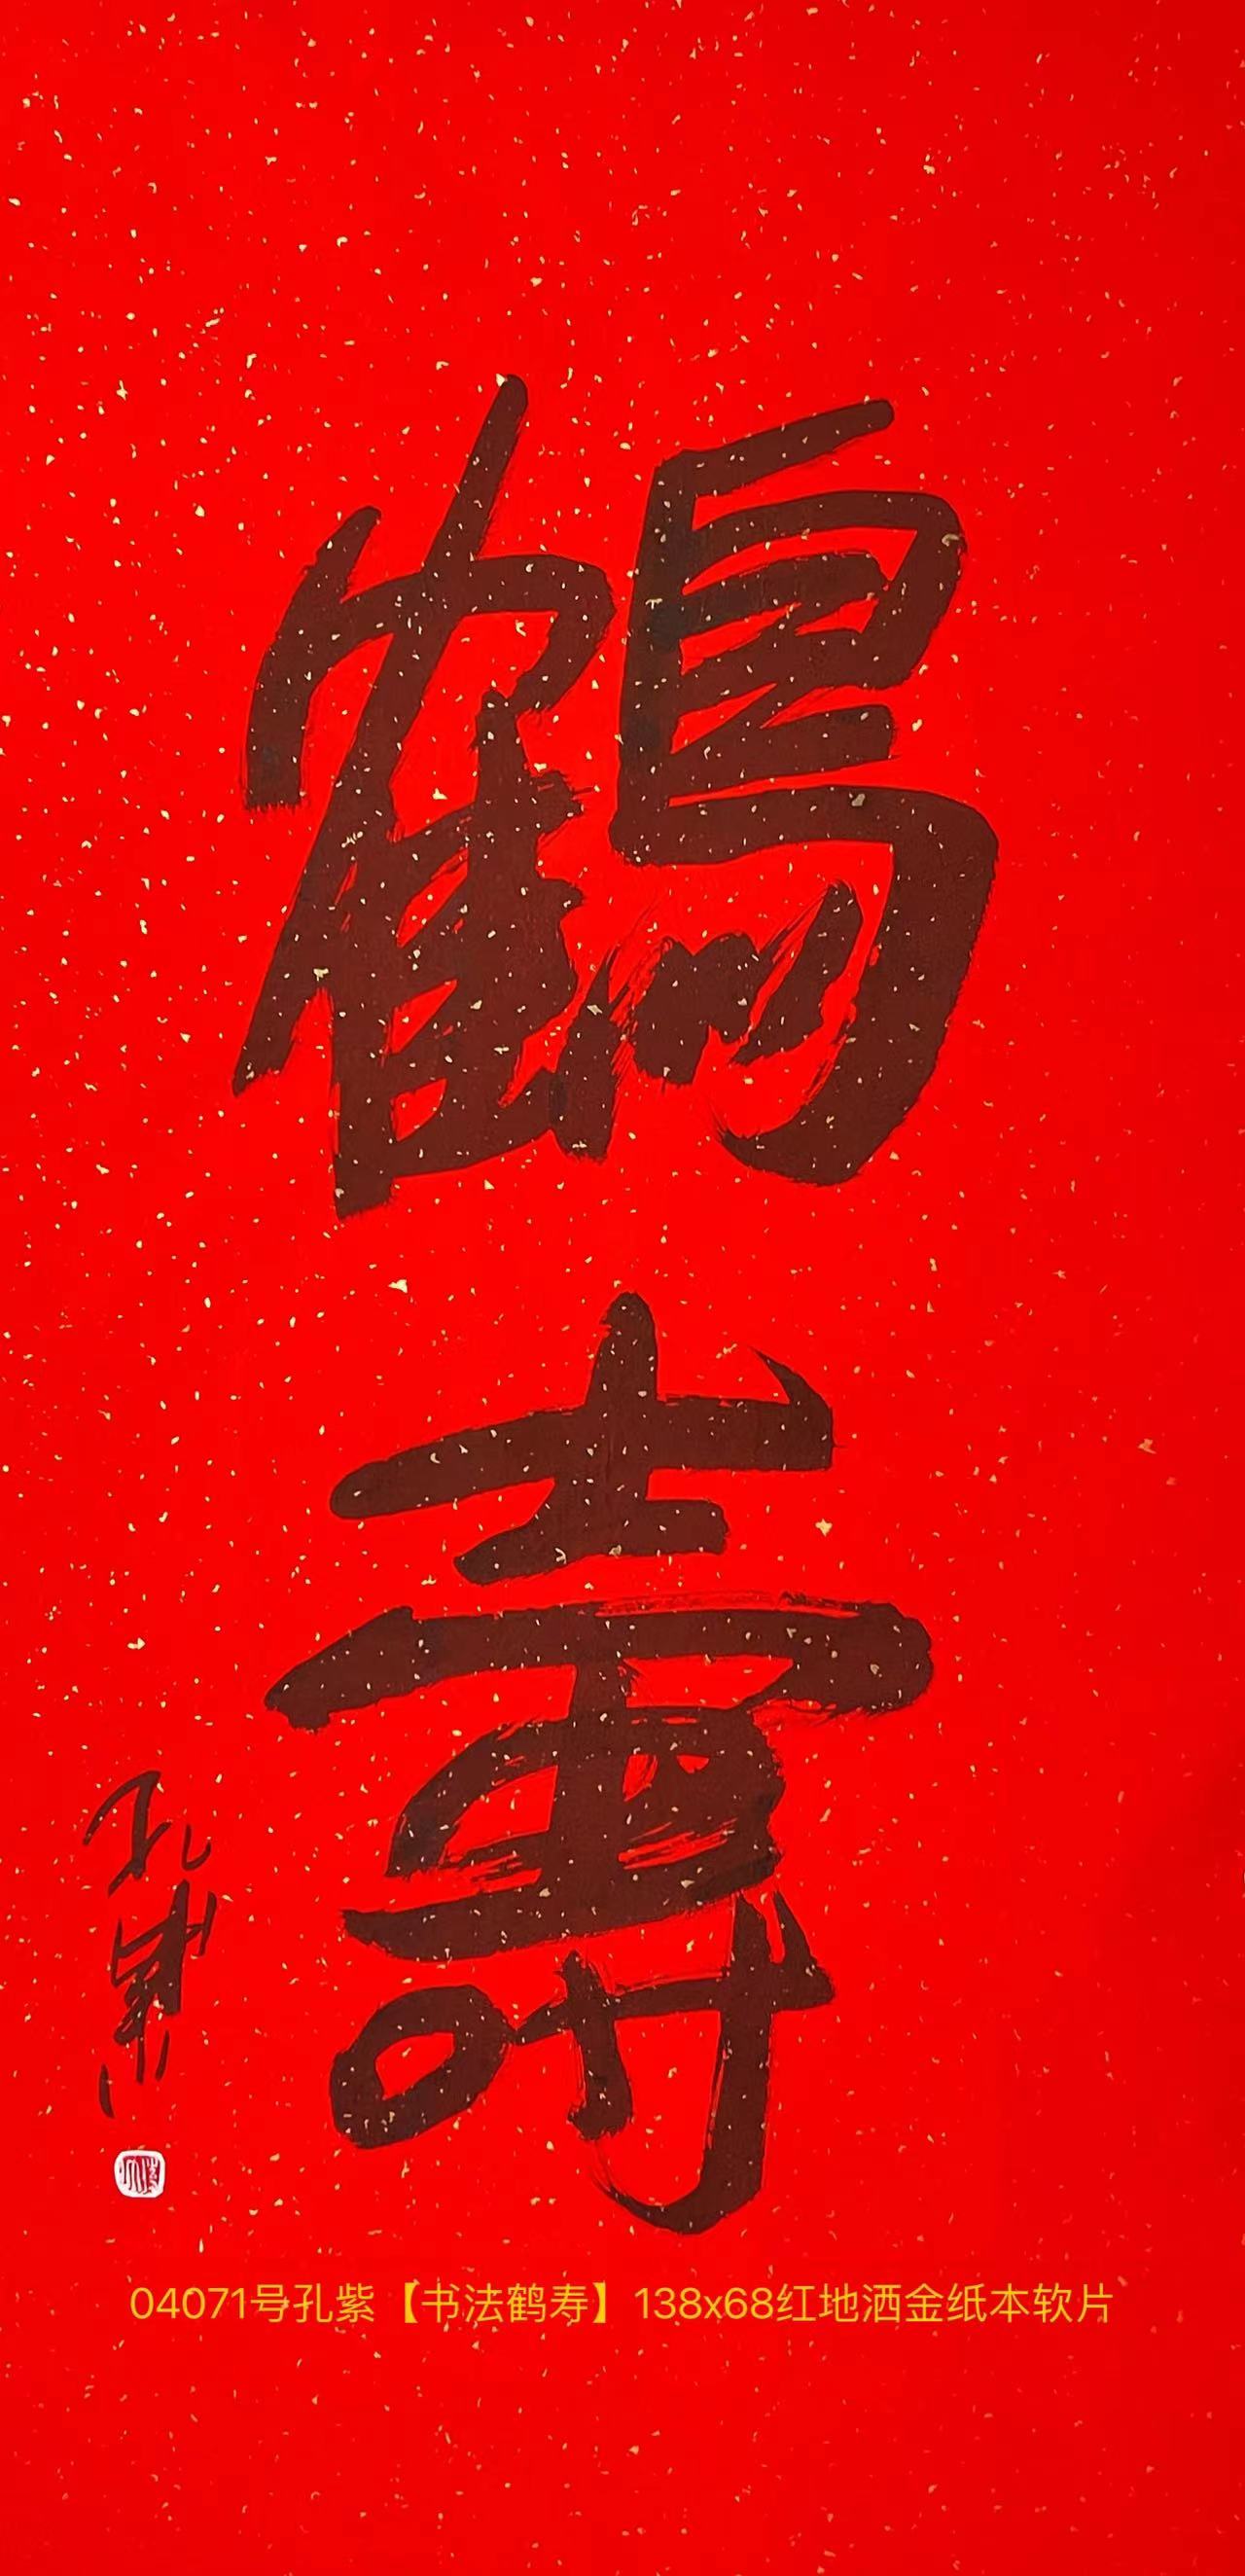 鶴
壽
孔紫
04071号孔紫【书法鹤寿】138x68红地洒金纸本软片